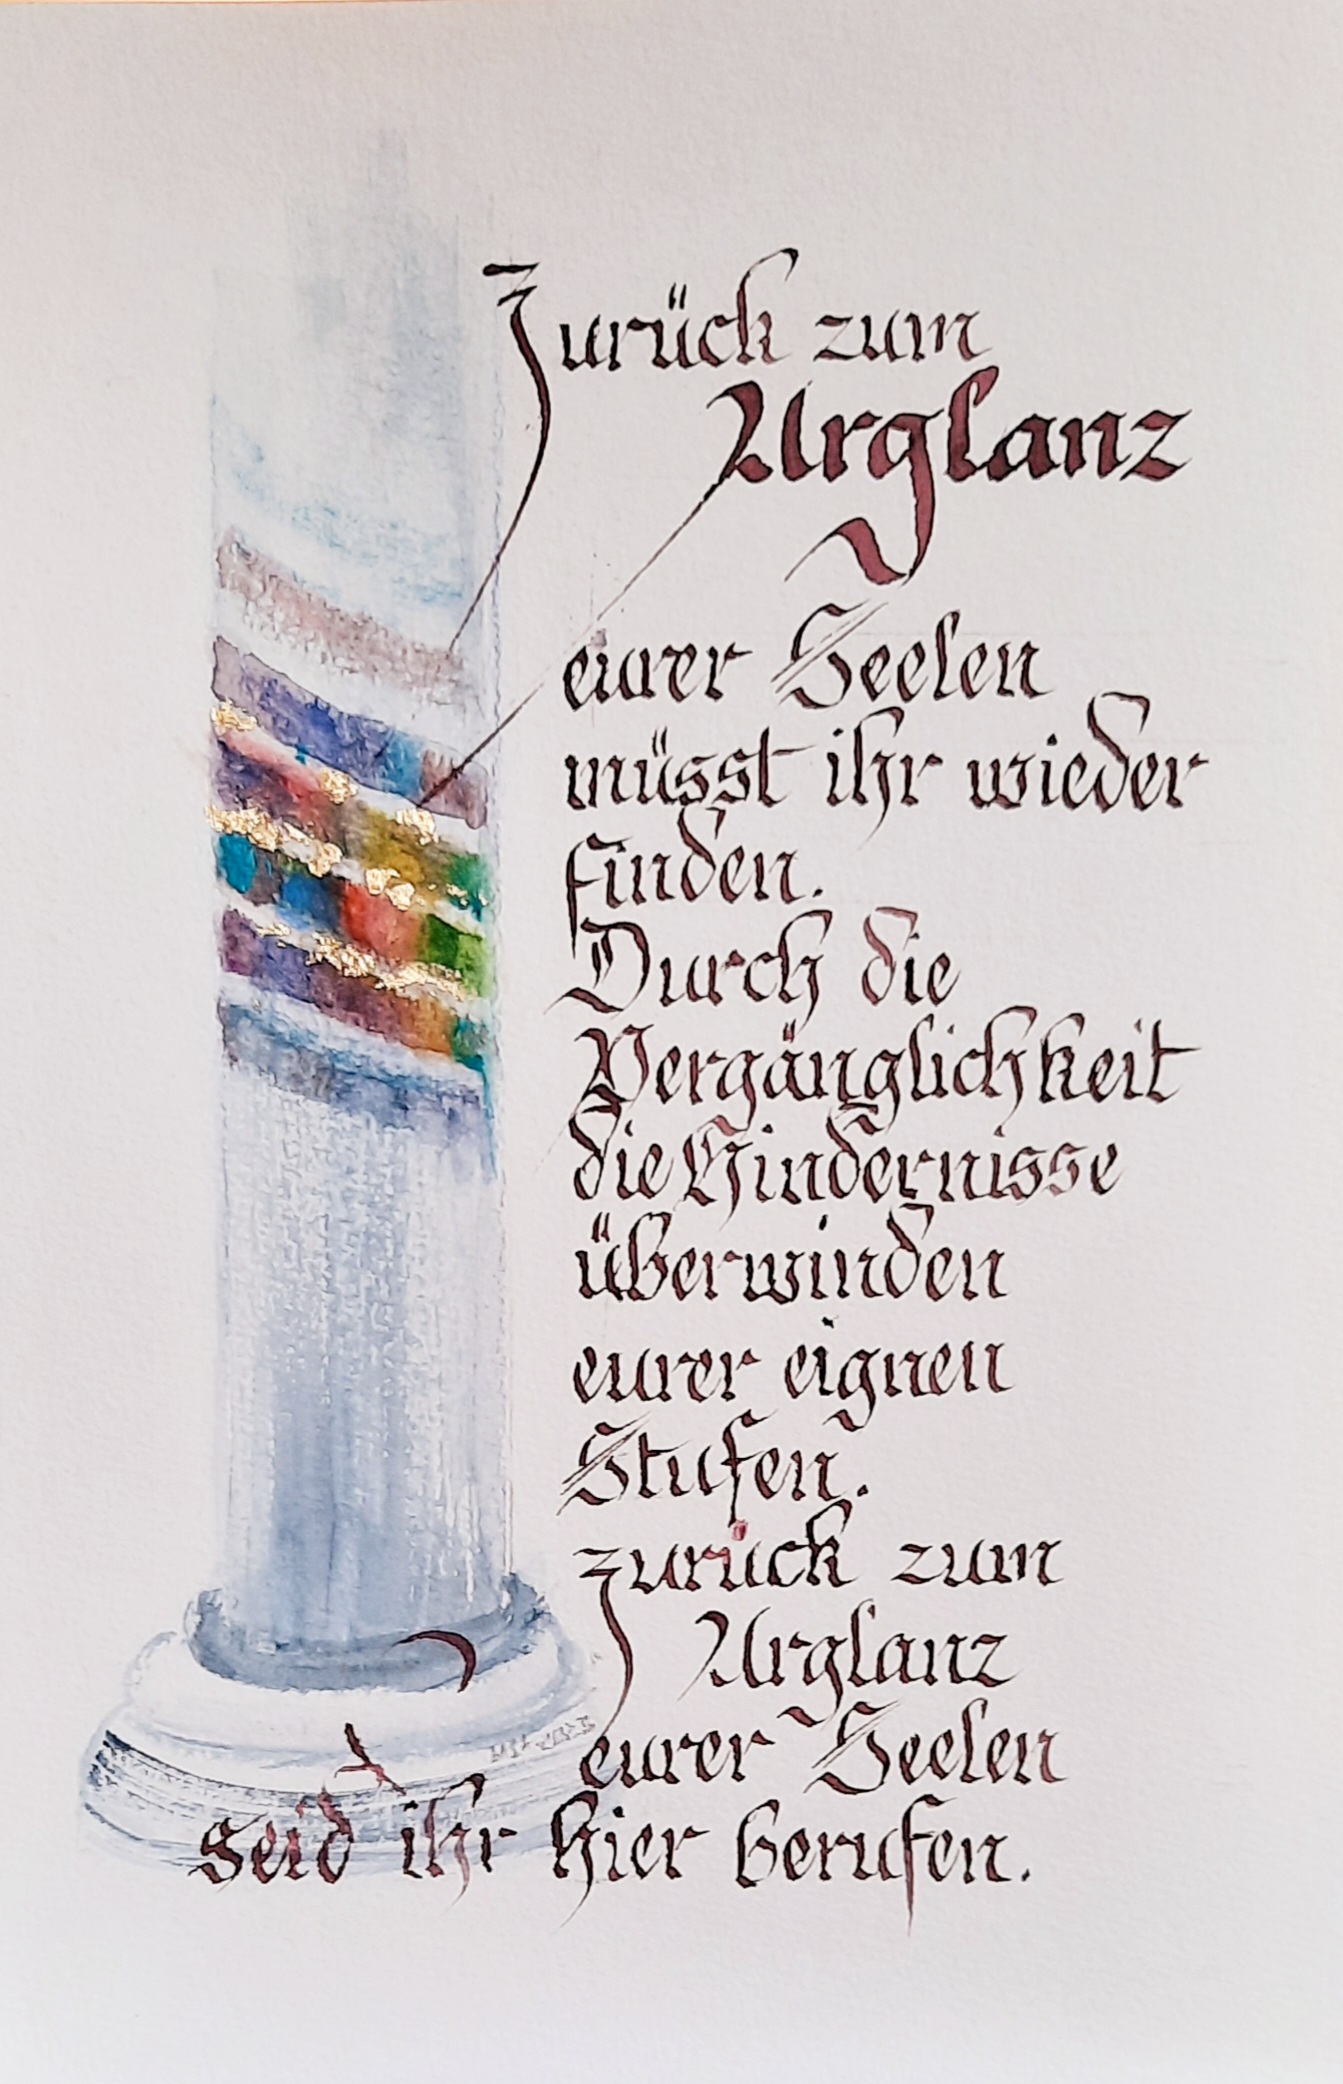 Zurück zum
Urglanz
eurer Seelen
müsst ihr wieder
finden.
Durch die
Vergänglichkeit
die Hindernisse
überwinden
eurer eignen
Stufen.
Zurück zum
Urglanz
eurer Seelen
seid ihr hier berufen.